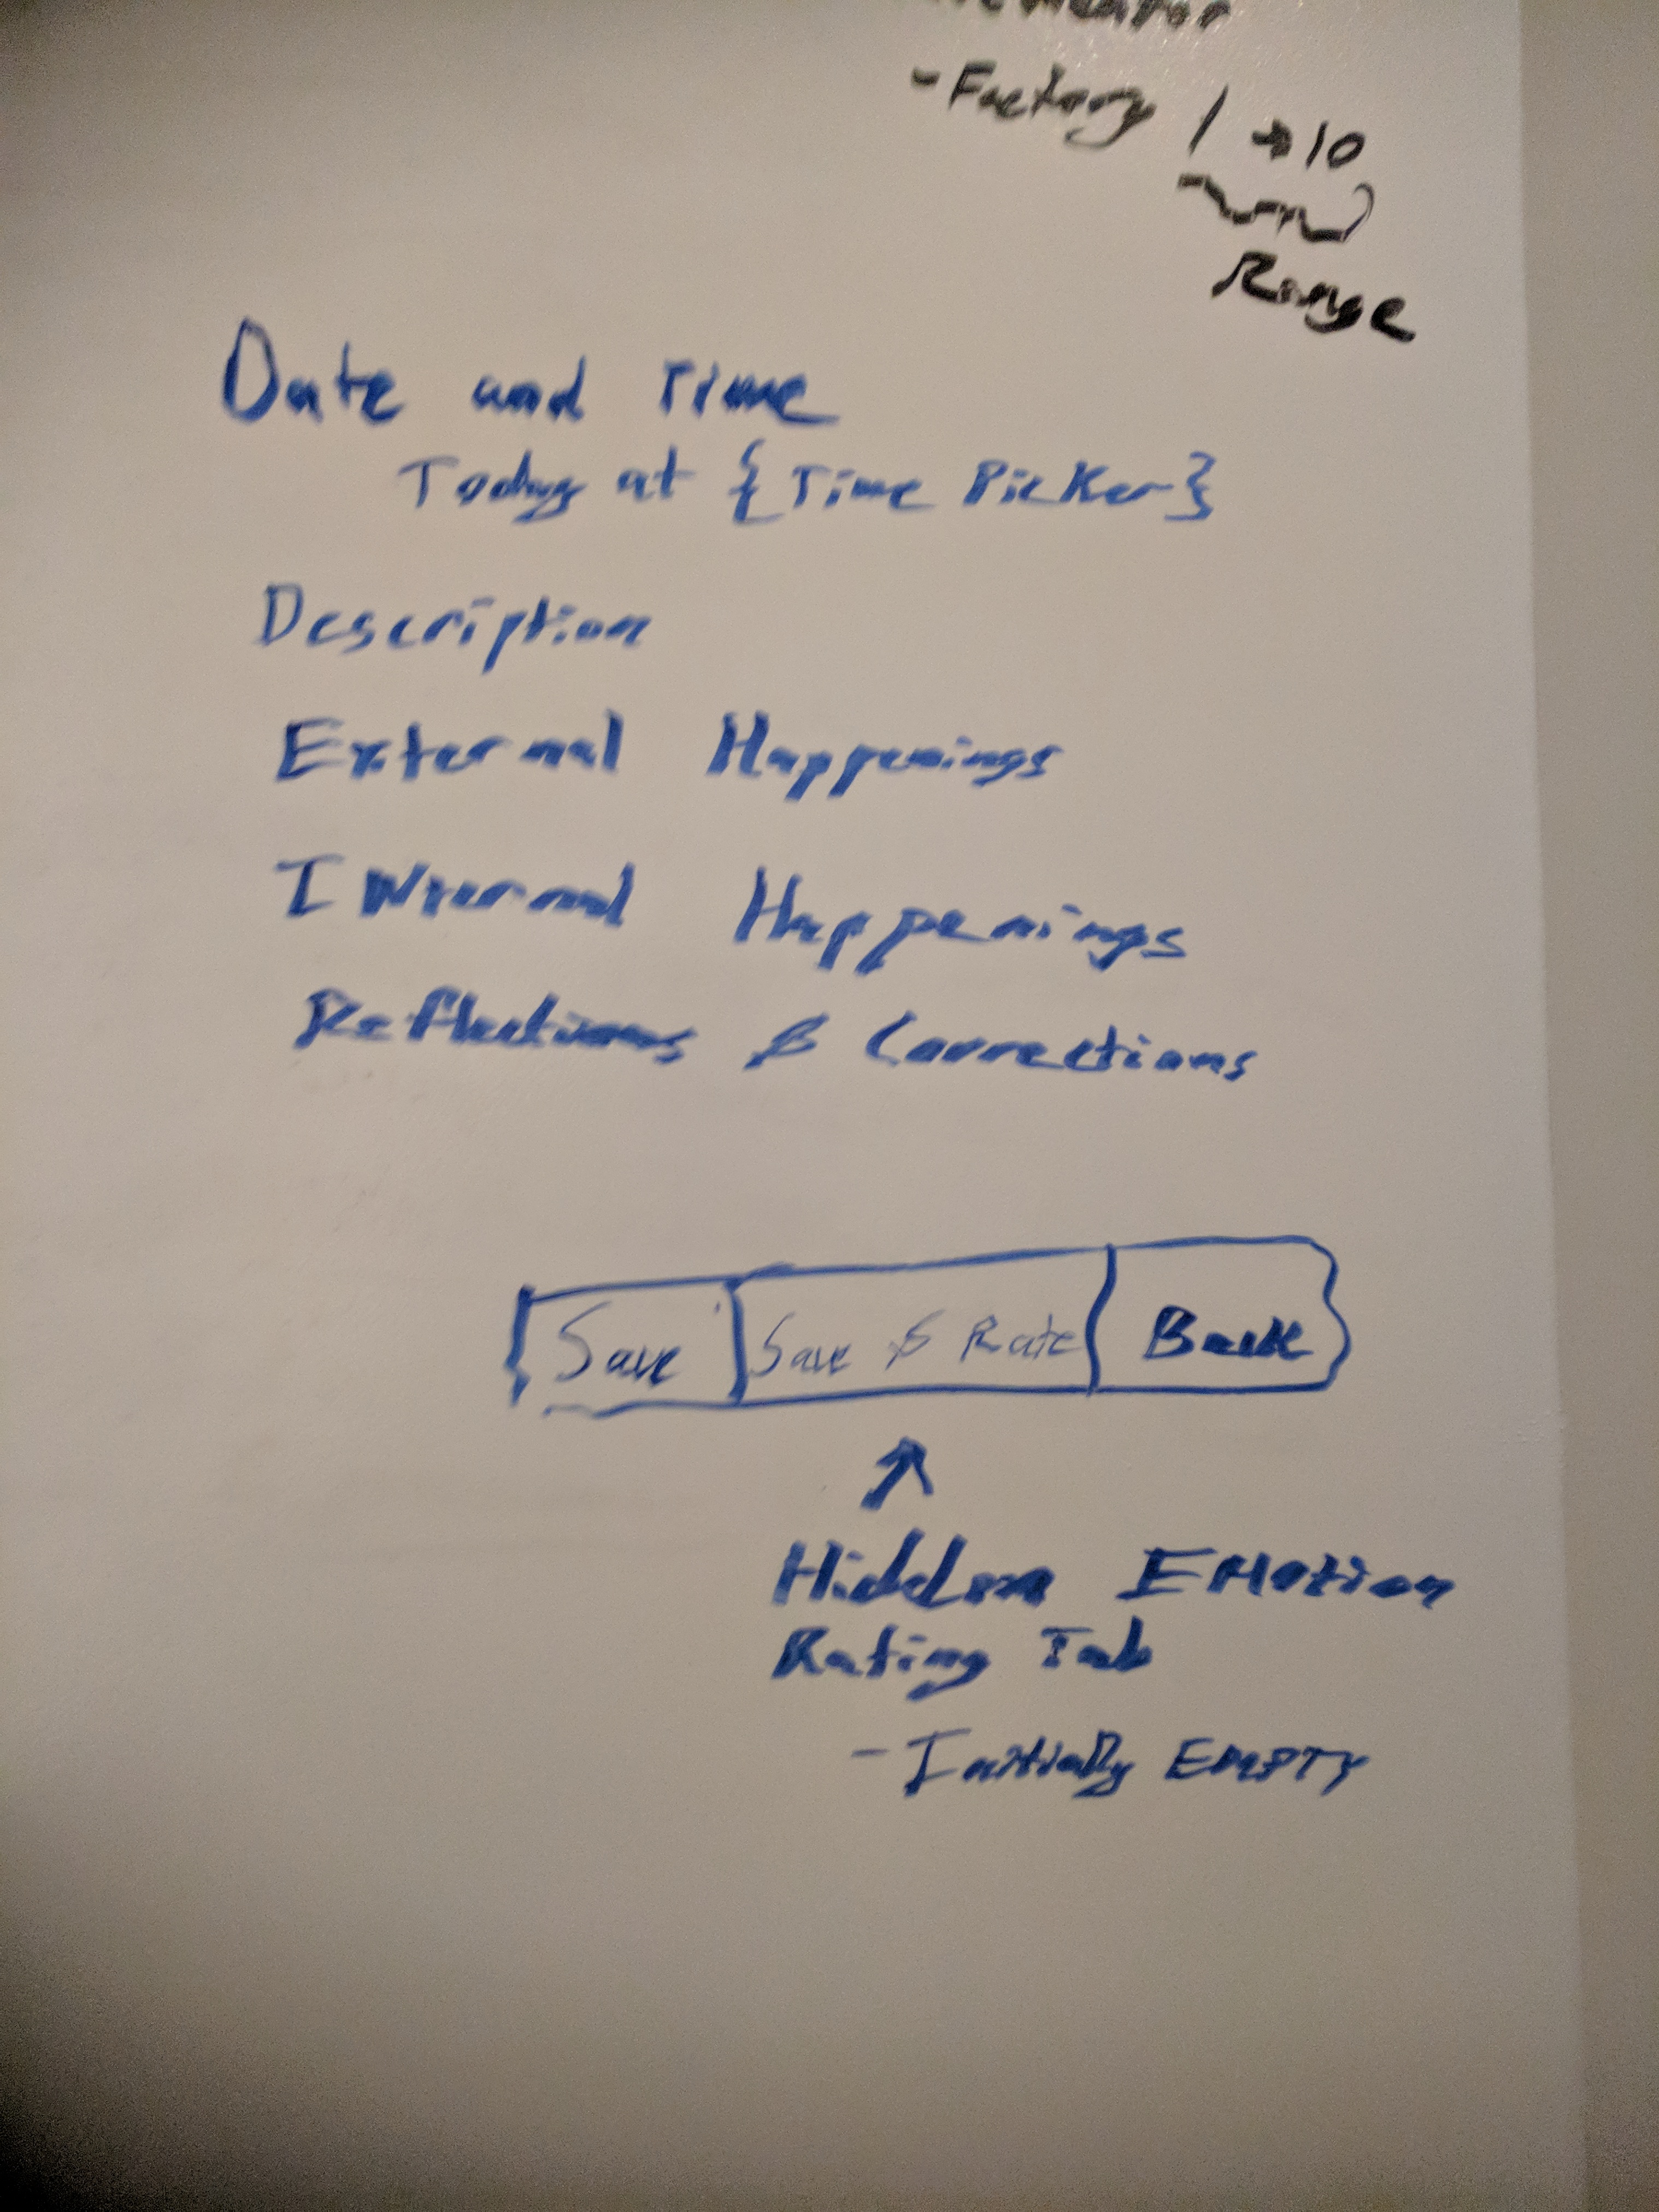 - Factory 1 → 10
Range
Date and Time
Today at {Time Picker}
Description
External Happenings
Internal Happenings
Reflections & Corrections
Save Save & Rate Back
Hidden Emotion
Rating Tab
- Initially EMPTY